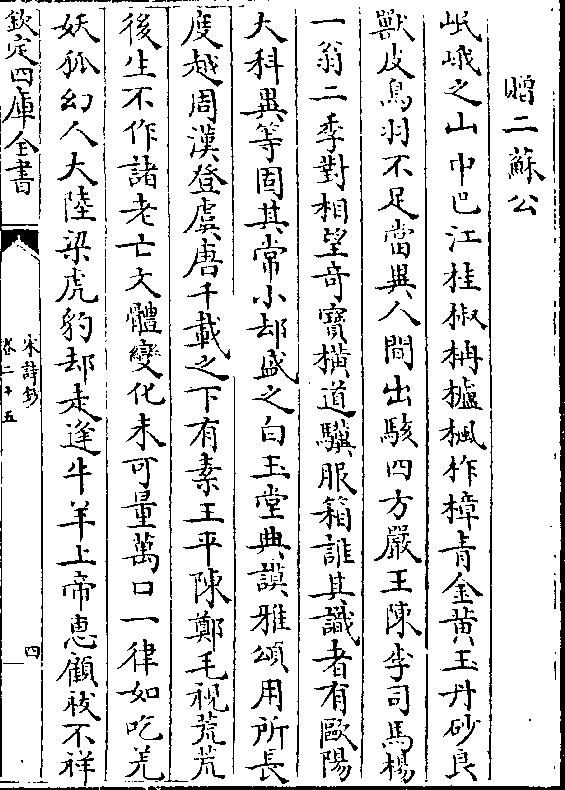 贈二蘇公
岷峨之山中巴江桂椒枏櫨楓柞樟青金黃玉丹砂良
獸皮鳥羽不足當異人間出駭四方嚴王陳李司馬楊
一翁二季對相望奇寶橫道驥服箱誰其識者有歐陽
大科異等固其常小却盛之白玉堂典謨雅頌用所長
度越周漢登虞唐千載之下有素王平陳鄭毛視荒荒
後生不作諸老亡文體變化未可量萬口一律如吃羌
妖狐幻人大陸梁虎豹却走逢牛羊上帝惠顧祓不祥
欽定四庫全書
宋詩鈔
卷二十五
四